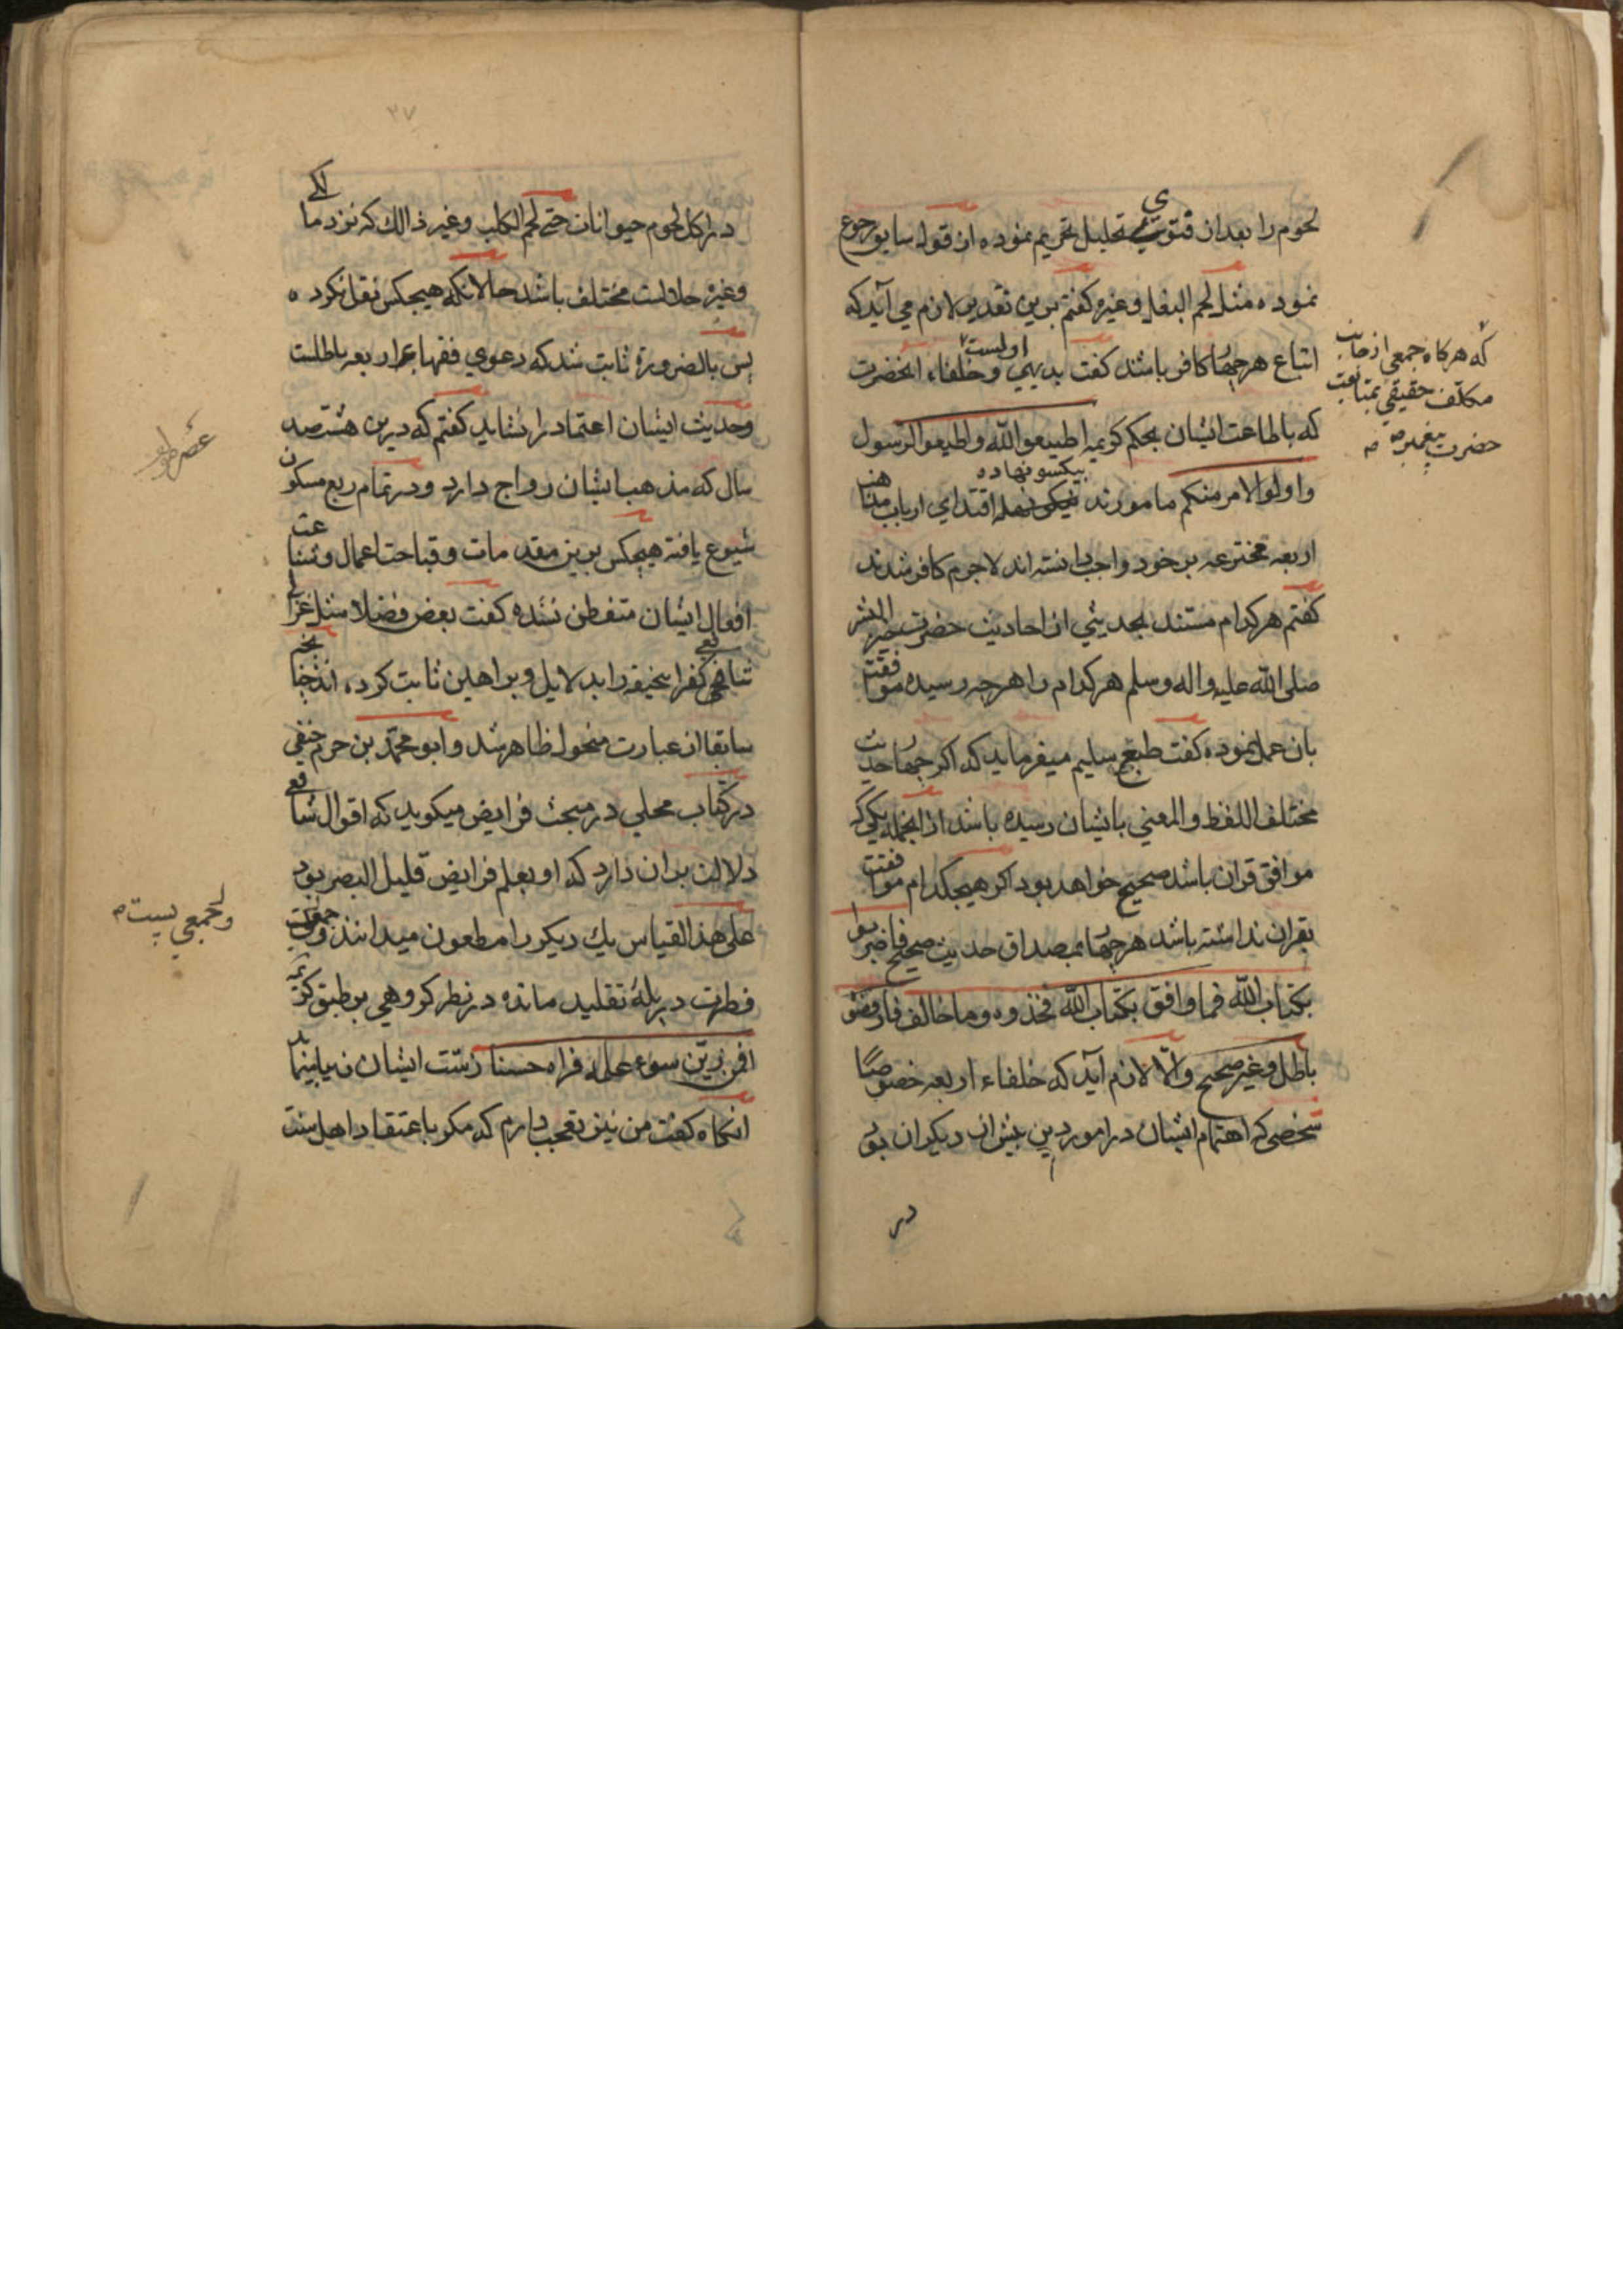 لحوم را بعد از فتوی تحلیل تحریم نموده از قول سابق رجوع
نموده مثل لحم البغل وغیره کفتم برین تقدیر لازم می آید که
اتباع هر چهار کافر باشند کفت بدیهی اولیست و خلفاء انحضرت
که باطاعت ایشان بحکم کریمه اطیعوالله واطیعوالرسول
واولوالامر منکم مامورند بیکسو نهاده اقتدای ارباب مذاهب
اربعه مخترعه بر خود واجب دانسته اند لاجرم کافر شدند
کفتم هر کدام مستند بحدیثی از احادیث حضرت خیر البشر
صلی الله علیه واله وسلم هر کدام را هر چه رسیده موافقت
بان عمل نموده کفت طبع سلیم میفرماید که اکر چهار حدیث
مختلف اللفظ والمعنی بایشان رسیده باشد از انجمله یکی که
موافق قران باشد صحیح خواهد بود اکر هیچکدام موافقت
بقران نداشته باشد هر چهار بمصداق حدیث صحیح فاضربوا
بکتاب الله فما وافق بکتاب الله فخذوه وما خالف فارفضو
باطل وغیر صحیح والّا لازم آید که خلفاء اربعه خصوصًا
شخصی که اهتمام ایشان در امور دین بیش از دیکران بود
در
که هرکاه جمعی از جانب
مکلّف حقیقی بمتابعت
حضرت پیغمبر ص
۳۷
در اکل لحوم حیوانات حتی لحم الکلب وغیر ذالک که نزد مالکی
وغیره حلالست مختلف باشد حالانکه هیچکس نقل نکرده
پس بالضرورة ثابت شد که دعوی فقها اربعه باطلست
وحدیث ایشان اعتماد را نشاید کفتم که درین هشتصد
سال که مذهب ایشان رواج دارد ودر تمام ربع مسکون
شیوع یافته هیچکس برین مقدمات وقباحت اعمال وشناعت
افعال ایشان متفطن نشده کفت بعض فضلا مثل غزالی
شافعی کفر ابحنیفه را بدلایل وبراهین ثابت کرده اند چنانچه
سابقا از عبارت منخول ظاهر شد وابو محمّد بن حزم حنفی
در کتاب محلی در مبحث فرایض میکوید که اقوال شافعی
دلالت بران دارد که او بعلم فرایض قلیل البصر بود
علی هذا القیاس یک دیکر را مطعون میدانند
فطرت در پلهٔ تقلید مانده در نظر کروهی بر طبق کریمه
افمن زیّن سوء عمله فراه حسنا زشت ایشان زیبا بینماید
انکاه کفت من نیز تعجب دارم که مکر باعتقاد اهل سنت
وجمعی پست